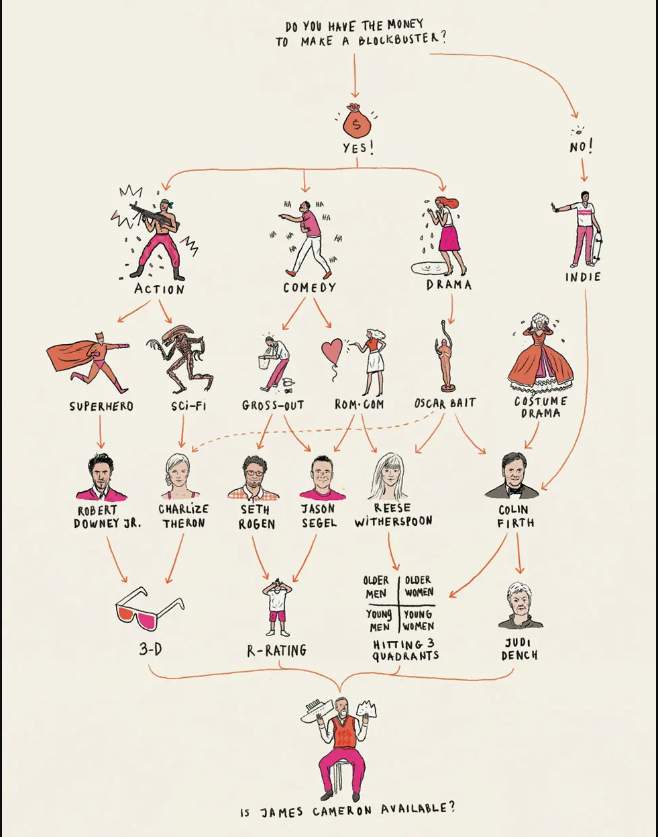 DO YOU HAVE THE MONEY
TO MAKE A BLOCKBUSTER?
$
YES!
NO!
HA HA
HA HA
HA HA
HA HA
HA
ACTION
COMEDY
DRAMA
INDIE
SUPERHERO
SCI-FI
GROSS-OUT
ROM·COM
OSCAR BAIT
COSTUME
DRAMA
ROBERT
DOWNEY JR.
CHARLIZE
THERON
SETH
ROGEN
JASON
SEGEL
REESE
WITHERSPOON
COLIN
FIRTH
OLDER
MEN
OLDER
WOMEN
YOUNG
MEN
YOUNG
WOMEN
3-D
R-RATING
HITTING 3
QUADRANTS
JUDI
DENCH
IS JAMES CAMERON AVAILABLE?